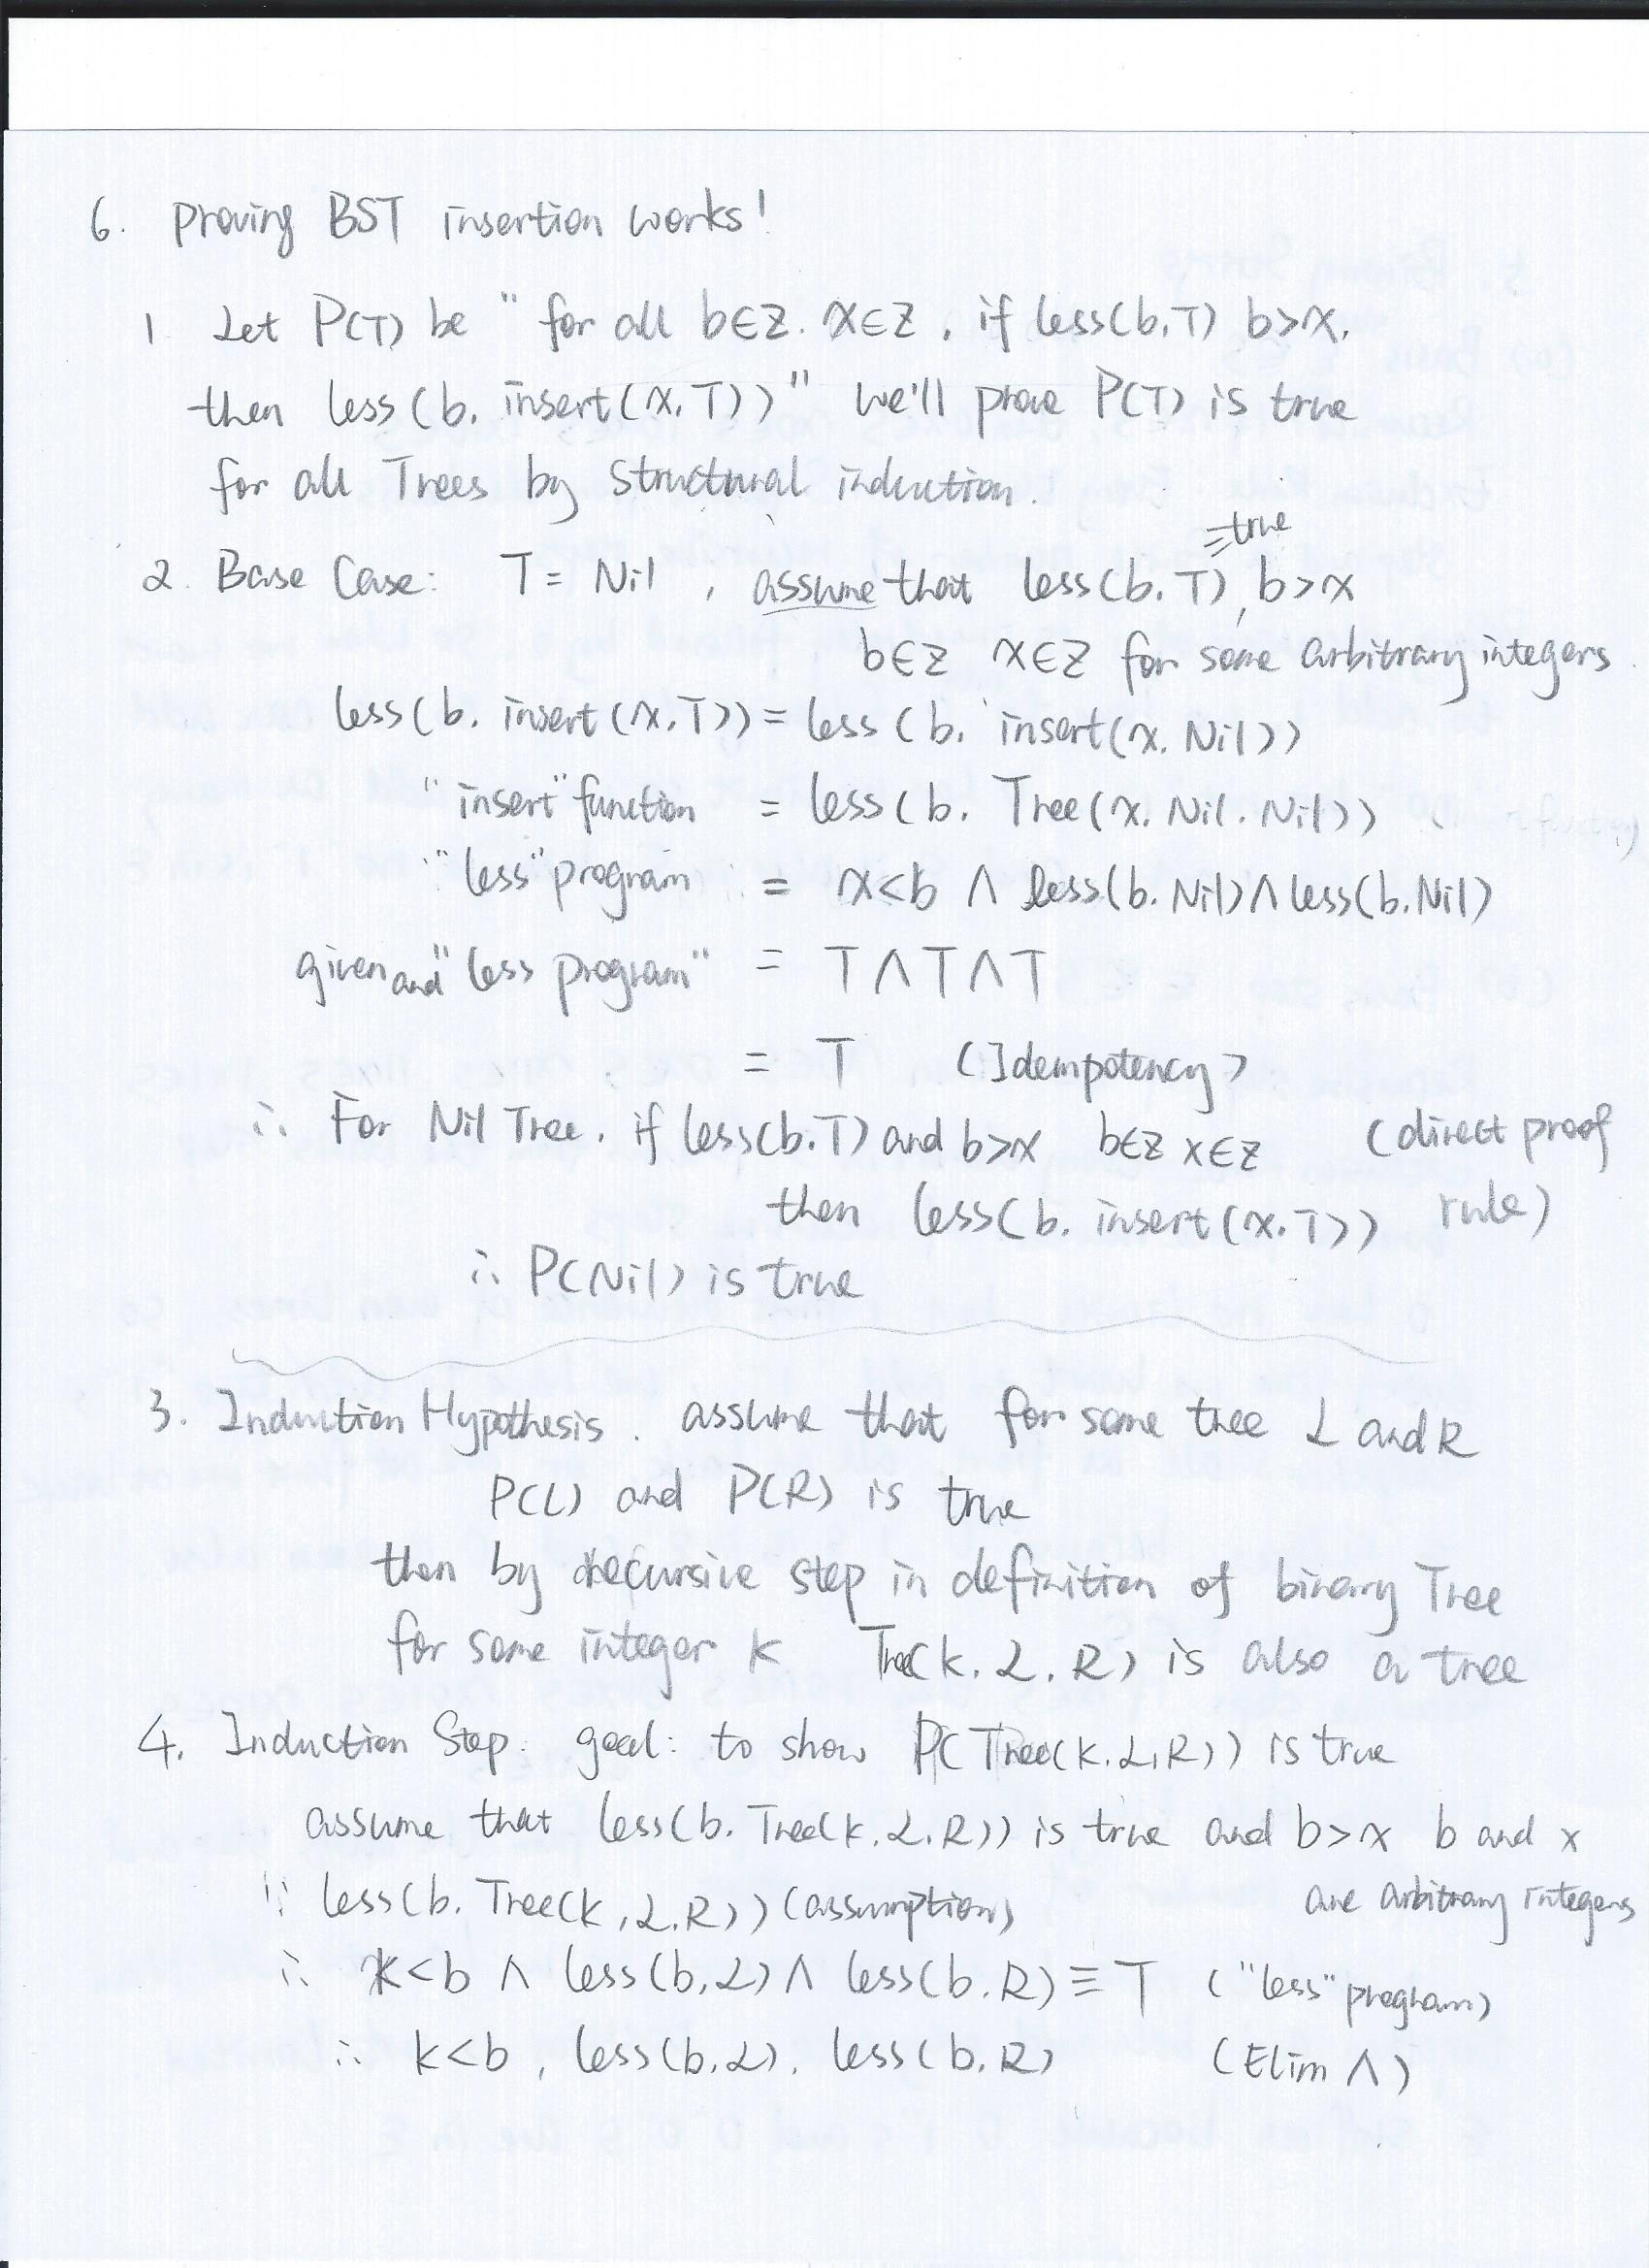 6. Proving BST insertion works!
1 Let P(T) be " for all b∈Z. x∈Z, if less(b.T) b>x,
then less(b. insert(x.T))" we'll prove P(T) is true
for all Trees by Structural induction.
≡true
2. Base Case: T = Nil , assume that less(b.T), b>x
b∈Z x∈Z for some arbitrary integers.
less(b. insert(x.T)) = less(b. insert(x. Nil))
"insert" function = less(b. Tree(x. Nil. Nil))
"less" program = x<b ∧ less(b. Nil) ∧ less(b. Nil)
given and "less program" = T∧T∧T
= T (Idempotency)
∴ For Nil Tree. if less(b.T) and b>x b∈Z x∈Z (direct proof
then less(b. insert(x.T)) rule)
∴ P(Nil) is true
3. Induction Hypothesis. assume that for some tree L and R
P(L) and P(R) is true
then by recursive step in definition of binary Tree
for some integer k Tree(k. L. R) is also a tree
4. Induction Step. goal: to show P(Tree(k. L, R)) is true
assume that less(b. Tree(k. L. R)) is true and b>x b and x
are arbitrary integers
∵ less(b. Tree(k, L. R)) (assumption)
∴ k<b ∧ less(b, L) ∧ less(b. R) ≡ T ("less" program)
∴ k<b, less(b, L), less(b, R) (Elim ∧)